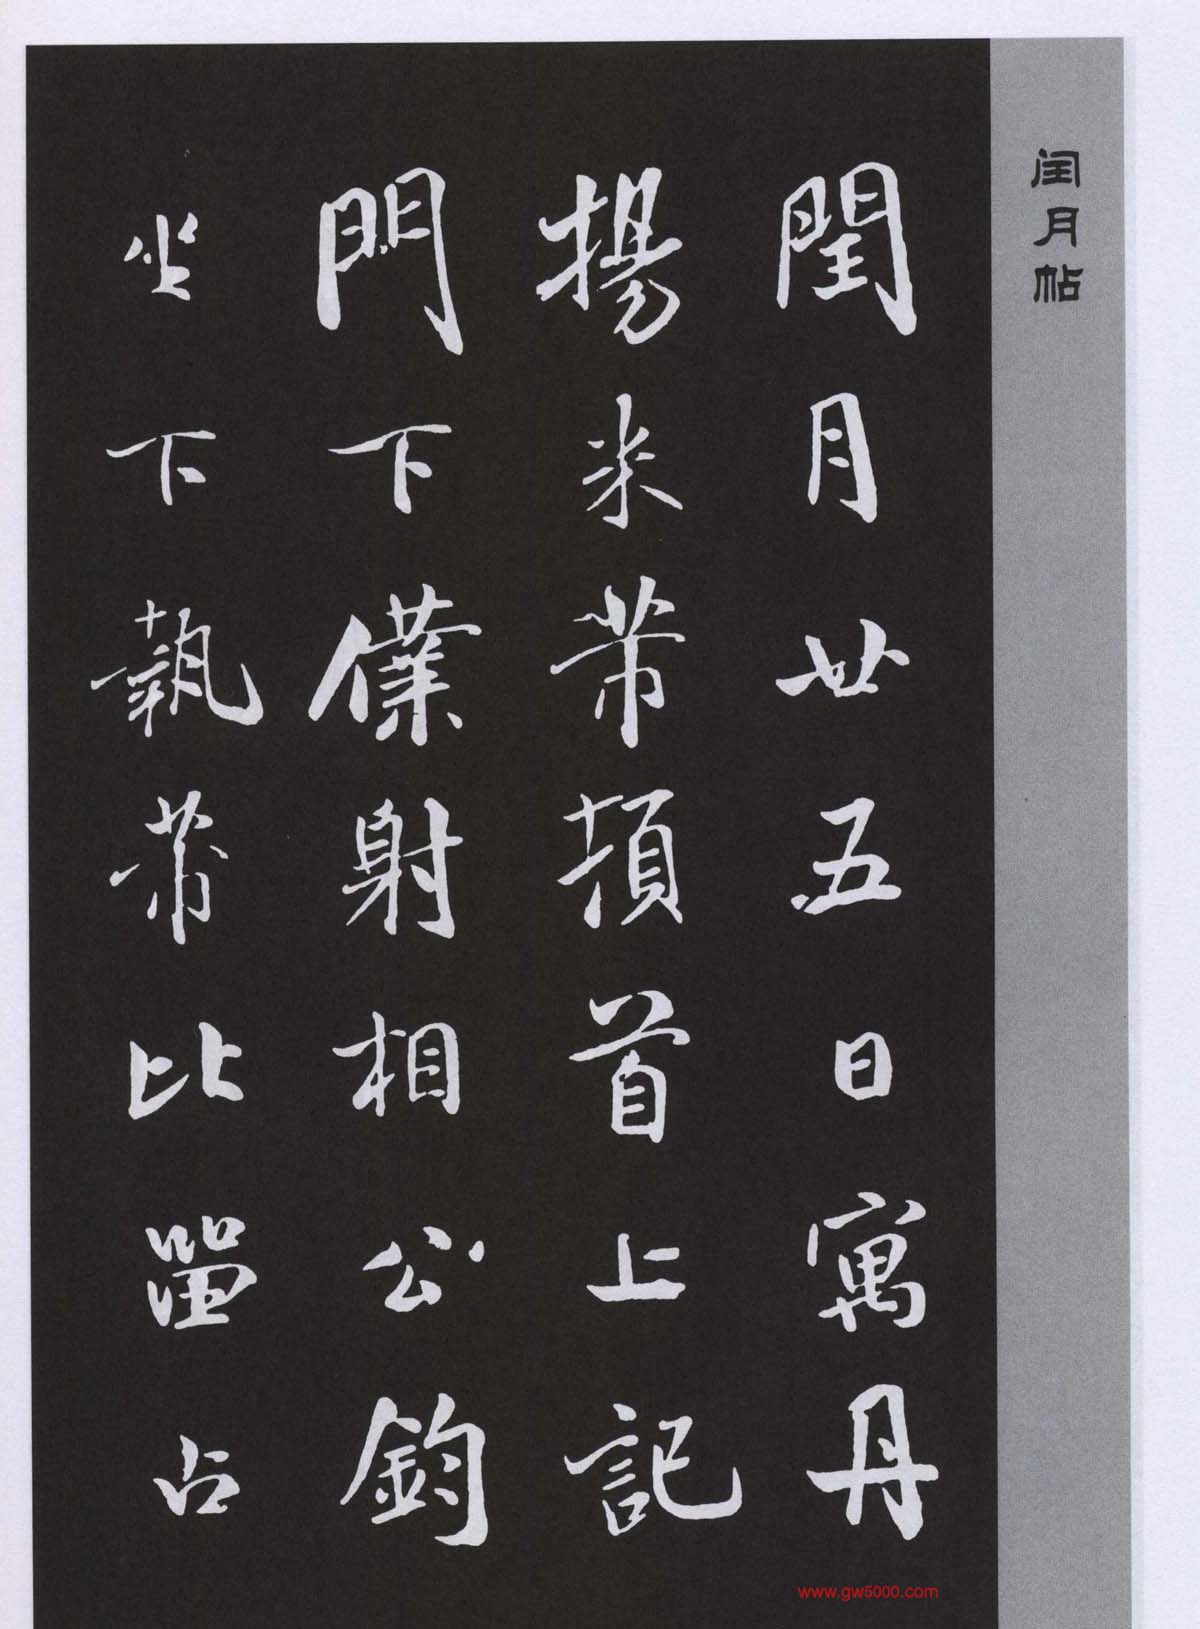 闰月帖
閏月廿五日寓丹
揚米芾頓首上記
門下僕射相公鈞
坐下執芾比留占
www.gw5000.com